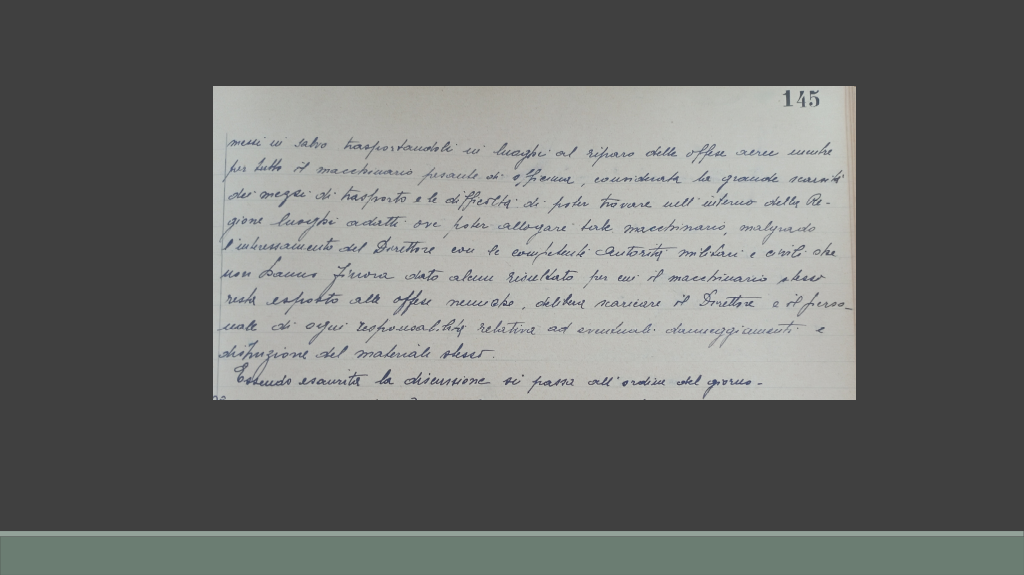 145
messi in salvo trasportandoli in luoghi al riparo delle offese aeree mentre
per tutto il macchinario pesante di officina, considerata la grande scarsità
dei mezzi di trasporto e le difficoltà di poter trovare nell'interno della Re-
gione luoghi adatti ove poter allogare tale macchinario, malgrado
l'interessamento del Direttore con le competenti Autorità militari e civili che
non hanno finora dato alcun risultato per cui il macchinario stesso
resta esposto alle offese nemiche, delibera scaricare il Direttore e il perso-
nale di ogni responsabilità relativa ad eventuali danneggiamenti e
distruzione del materiale stesso.
Essendo esaurita la discussione si passa all'ordine del giorno-